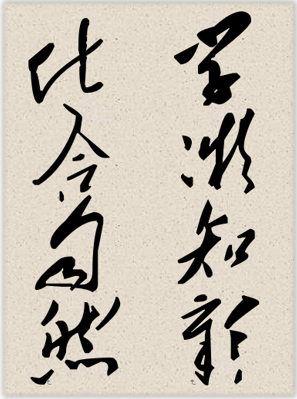 学知新
化合自然